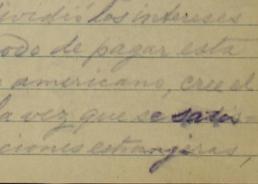 dividió los intereses
odo de pagar esta
americano, cree el
la vez que se satis-
ciones estranjeras,